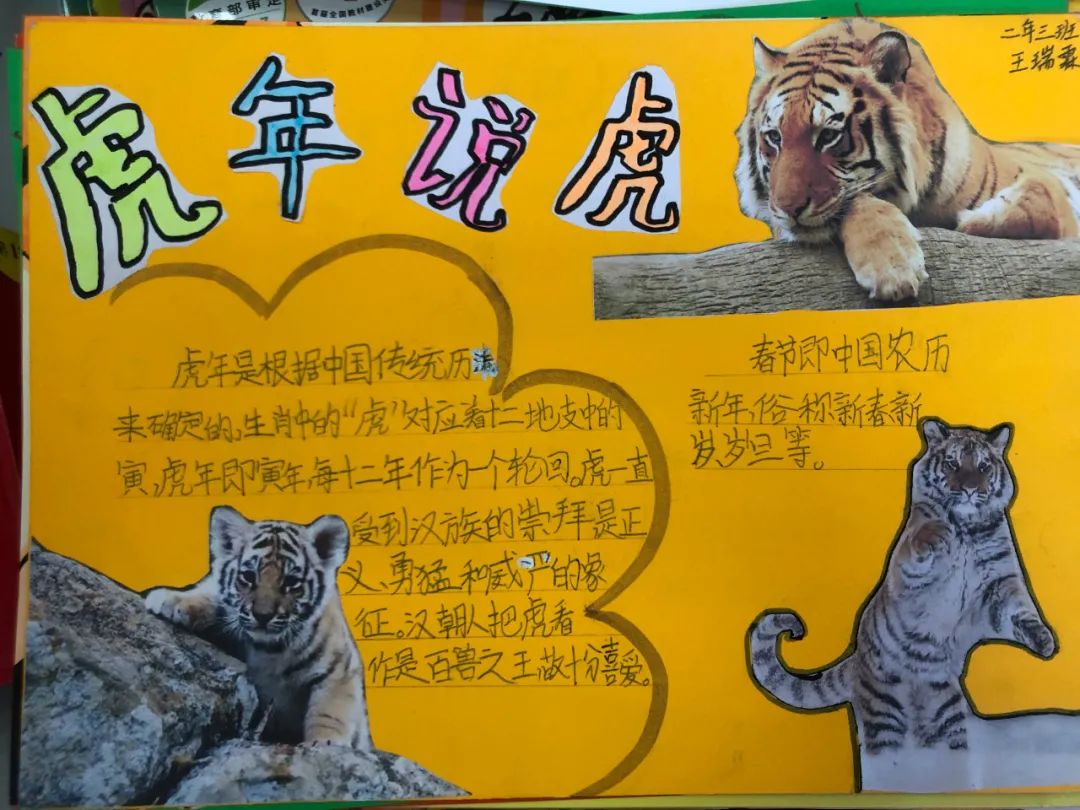 二年三班
王瑞霖
虎年说虎
虎年是根据中国传统历法
来确定的,生肖中的“虎”对应着十二地支中的
寅,虎年即寅年,每十二年作为一个轮回。虎一直
受到汉族的崇拜是正
义、勇猛和威严的象
征。汉朝人把虎看
作是百兽之王故十分喜爱。
春节即中国农历
新年,俗称新春新
岁、岁旦等。